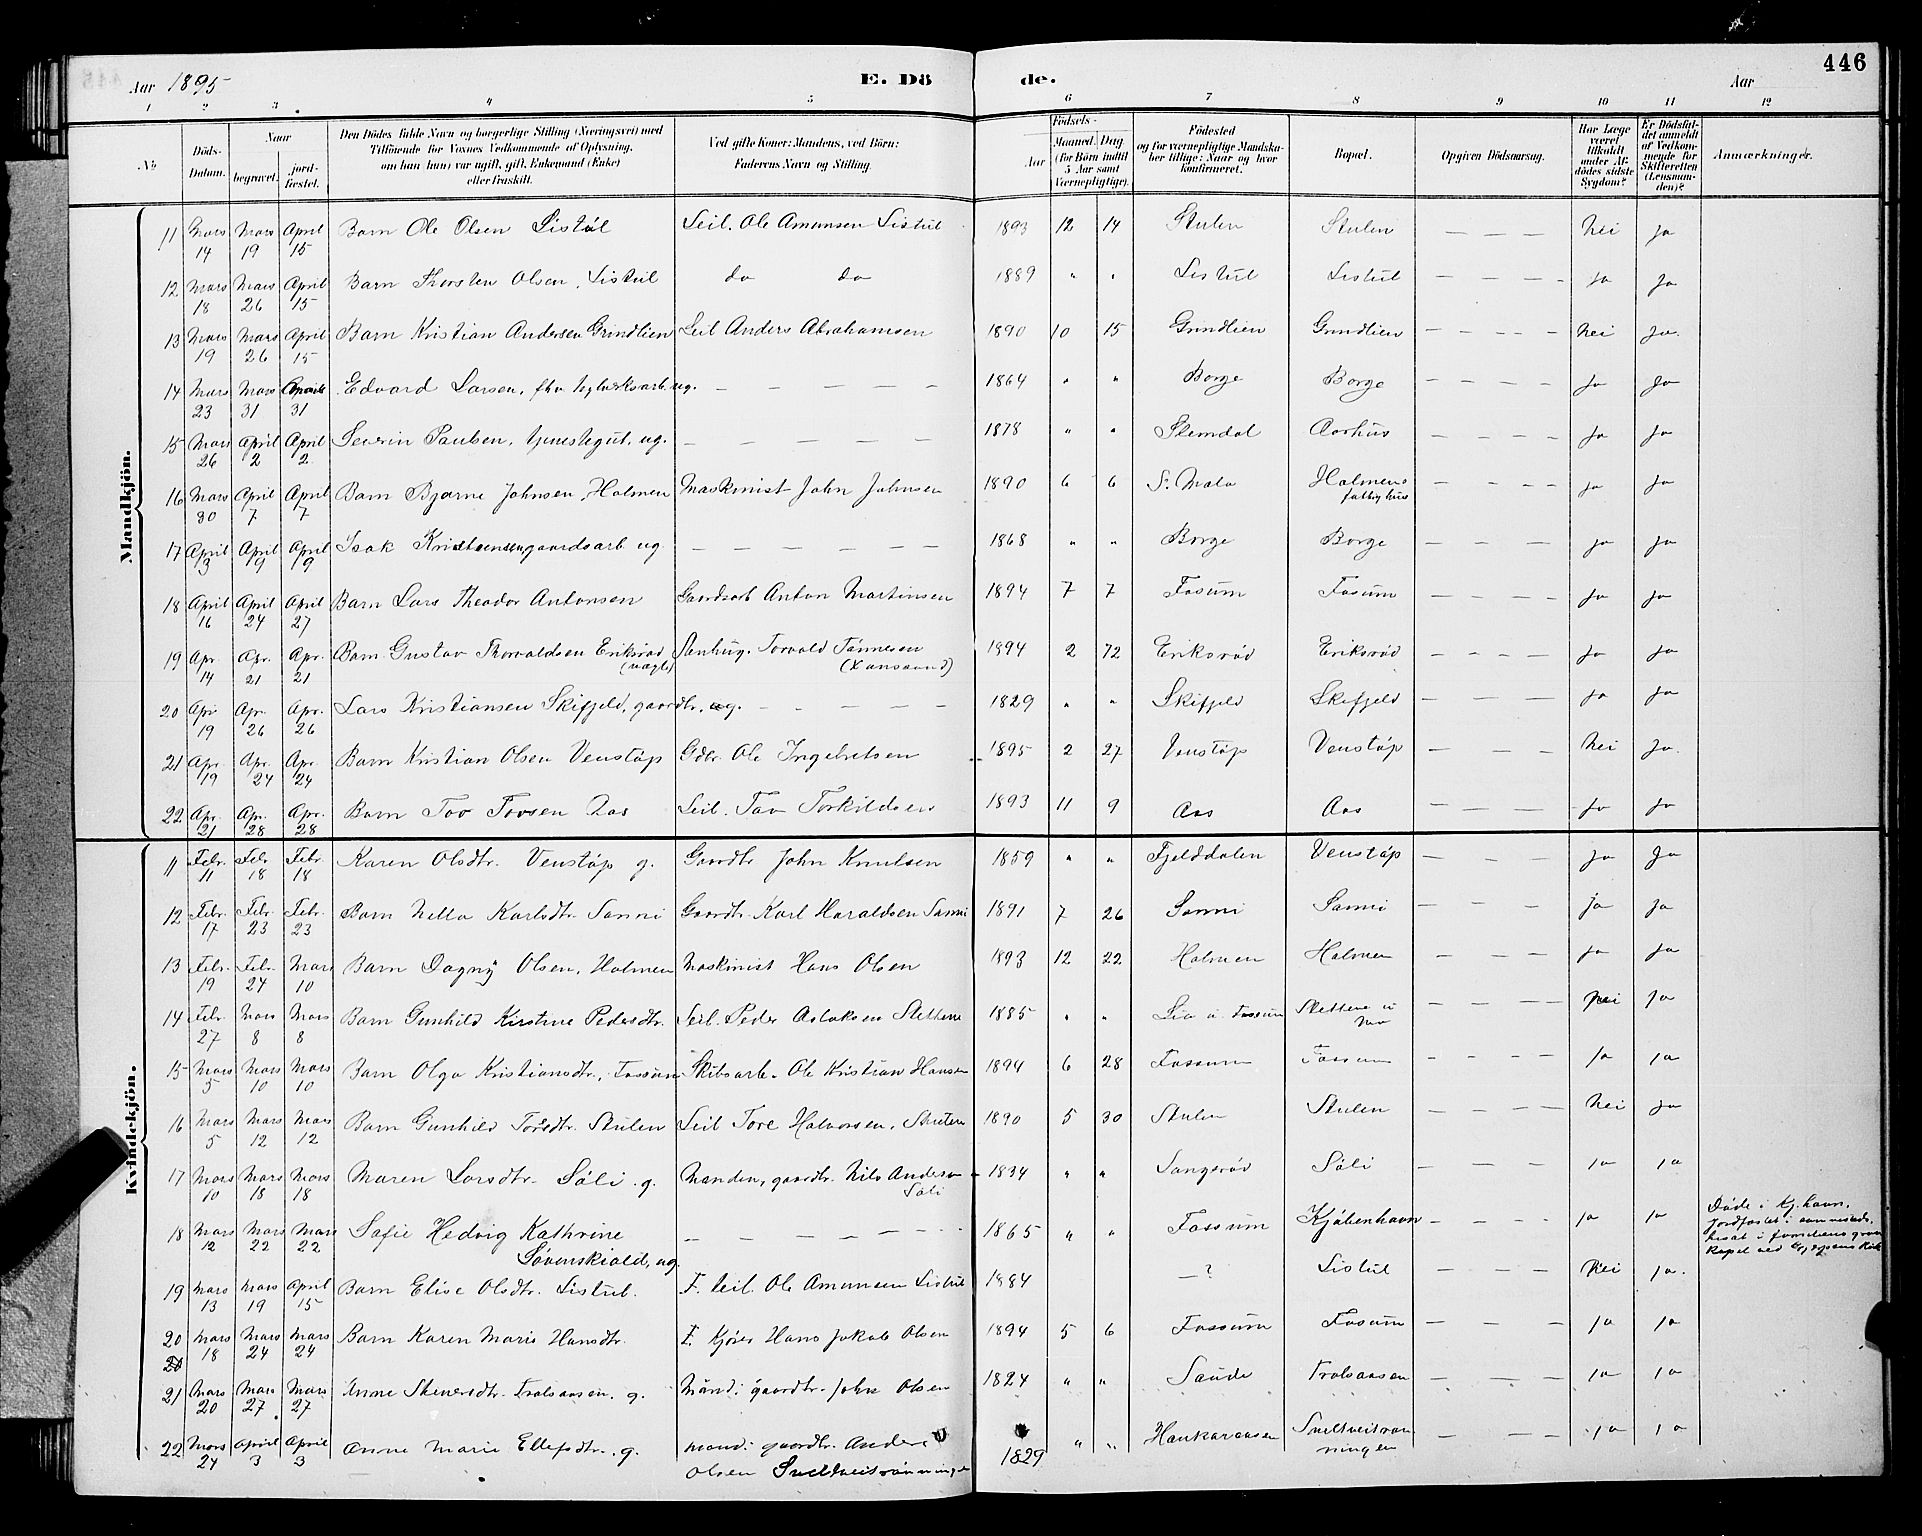 446
Aar 1895 E. Dö de. Aar
1 2 3 4 5 6 7 8 9 10 11 12
No Döds-Datum. Naar begravet. jordfæstet. Den Dödes fulde Navn og borgerlige Stilling (Næringsvei) med Tilföiende for Voxnes Vedkommende af Oplysning, om han (hun) var ugift, gift, Enkemand (Enke) eller fraskilt. Ved gifte Koner: Mandens, ved Börn: Faderens Navn og Stilling. Födsels- Aar Maaned. Dag (for Börn indtil 5 Aar samt Værnepligtige). Födested og for værnepligtige Mandskaber tillige: Naar og hvor konfirmeret. Bopæl. Opgiven Dödsaarsag. Har Læge været tilkaldt under Afdödes sidste Sygdom? Er Dödsfaldet anmeldt af Vedkommende for Skifteretten (Lensmanden)? Anmærkninger.
Mandkjön.
11 Mars 14 Mars 19 April 15 Barn Ole Olsen Listúl Leil. Ole Amunsen Listúl 1893 12 14 Stulen Stulen — — — Nei Ja
12 Mars 18 Mars 26 April 15 Barn Thorsten Olsen, Listúl do do 1889 " " Listúl Listúl — — — Ja Ja
13 Mars 19 Mars 26 April 15 Barn Kristian Andersen Grindlien Leil Anders Abrahamsen 1890 10 15 Grindlien Grindlien — — — Nei Ja.
14 Mars 23 Mars 31 April 31 Edvard Larsen, fhv. teglverksarb. ug. — — — 1864 " " Borge Borge — — — Ja Ja
15 Mars 26 April 2 April 2 Severin Paulsen, tjenestegut, ug. — — — 1878 " " Slemdal Aarhus — — — Ja Ja
16 Mars 30 April 7 April 7 Barn Bjarne Johnsen, Holmen Maskinist John Johnsen 1890 6 6 St. Malo Holmens fattighus — — — Ja Ja
17 April 13 April 19 April 19 Isak Kristensen gaardsarb ug. — — — 1868 " " Borge Borge — — — Ja Ja
18 April 16 April 24 April 27 Barn Lars Theodor Antonsen Gaardsarb Anton Martinsen 1894 7 7 Fosum Fosum — — — Ja Ja
19 Apr. 14 Apr. 21 Apr. 21 Barn Gustav Thorvaldsen Eriksrød (uægte) Stenhug. Torvald Tønnesen 1894 2 72 Eriksrød Eriksrød — — — Ja Ja
20 Apr. 19 Apr. 26 Apr. 26 Lars Kristiansen Skifjeld, gaardbr., ug. — — — 1829 " " Skifjeld Skifjeld — — — Ja Ja
21 Apr. 19 Apr. 24 Apr. 24 Barn Kristian Olsen Venstøp Gdbr. Ole Ingebretsen 1895 2 27 Venstøp Venstøp — — — Nei Ja.
22 Apr. 21 Apr. 28 Apr. 28 Barn Tov Tovsen Aas Leil. Tov Torkildsen 1893 11 9 Aas Aas — — — Ja Ja
Kvindekjön.
11 Febr. 11 Febr 18 Febr. 18 Karen Olsdtr. Venstøp g. Gaardbr John Knudsen 1859 " " Fjelddalen Venstøp — — — Ja Ja
12 Febr. 17 Febr. 23 Febr. 23 Barn Nella Karlsdtr. Sanni Gaardbr. Karl Haraldsen Sanni 1891 7 26 Sanni Sanni — — — Ja Ja
13 Febr. 19 Febr. 24 Mars 10 Barn Dagny Olsen, Holmen Maskinist Hans Olsen 1893 12 22 Holmen Holmen — — — Ja Ja
14 Febr. 27 Mars 8 Mars 8 Barn Gunhild Kirstine Pedersdtr. Leil. Peder Aslaksen Slettene 1885 " " Lia u. Fossum Slettene u — — — Nei Ja
15 Mars 5 Mars 10 Mars 10 Barn Olga Kristiansdtr., Fossum Skibsarb. Ole Kristian Hansen 1894 6 28 Fossum Fossum — — — Ja Ja
16 Mars 5 Mars 12 Mars 12 Barn Gunhild Toresdtr. Stulen Leil Tore Halvorsen, Stulen 1890 5 30 Stulen Stulen — — — Nei Ja
17 Mars 10 Mars 18 Mars 18 Maren Larsdtr. Søli. g. Manden, gaardbr. Nils Andersen Søli 1834 " " Sangerød Søli — — — Ja Ja
18 Mars 12 Mars 22 Mars 22 Sofie Hedvig Kathrine Løvenskiold, ug. — — — 1865 " " Fossum Kjøbenhavn — — — Ja Ja Døde i Kj.havn.
19 Mars 13 Mars 19 April 15 Barn Elise Olsdtr. Listúl. F. Leil. Ole Amunsen Listúl 1884 —? Listúl — — — Nei Ja.
20 Mars 18 Mars 24 Mars 24 Barn Karen Marie Hansdtr. F. Kjører Hans Jakob Olsen 1894 5 6 Fossum Fosum — — — Ja Ja
21 Mars 20 Mars 27 Mars 27 Anne Steneresdtr. Trolsaasen. g. Mand: gaardbr. John Olsen 1824 " " Saude Trolsaasen — — — Ja Ja
22 Mars 24 April 3 April 3 Anne Marie Ellefsdtr. g. Mand: gaardbr. Anders Olsen 1829 " " Haukaraasen — — — Ja Ja